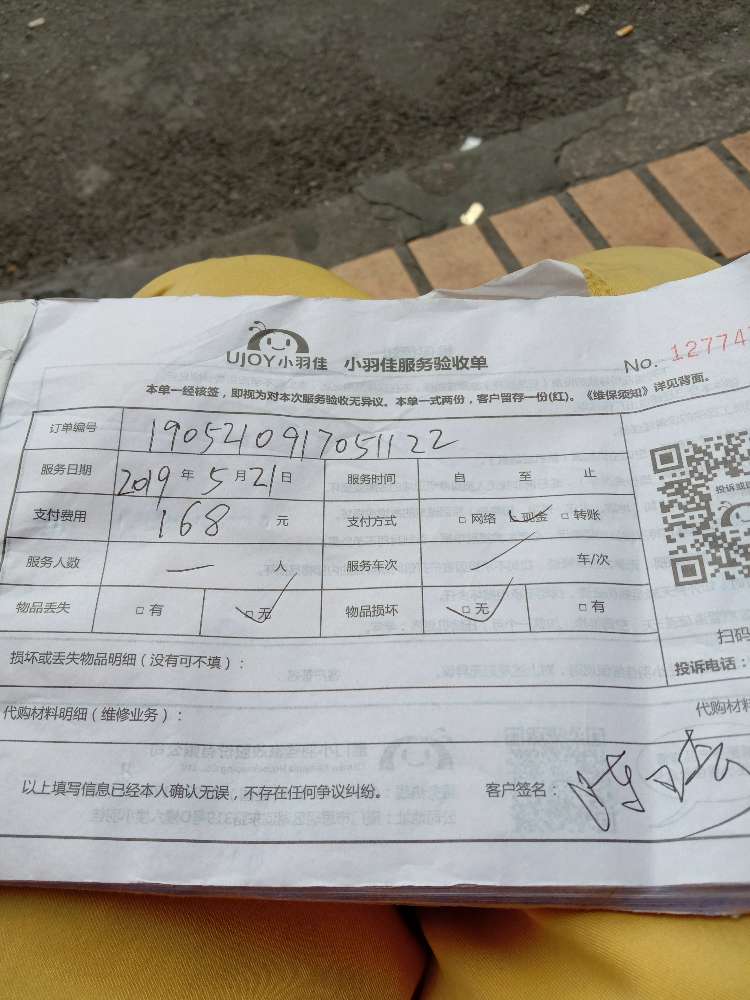 UJOY小羽佳 小羽佳服务验收单 No. 12774
本单一经核签，即视为对本次服务验收无异议。本单一式两份，客户留存一份(红)。《维保须知》详见背面。
订单编号 1905210917051122
服务日期 2019 年 5 月 21 日 服务时间 自 至 止
支付费用 168 元 支付方式 □ 网络 现金 □ 转账
服务人数 一 人 服务车次 车/次
物品丢失 □ 有 □ 无 物品损坏 □ 无 □ 有
投诉或
扫码
投诉电话：
损坏或丢失物品明细（没有可不填）：
代购材料明细（维修业务）： 代购材料
以上填写信息已经本人确认无误，不存在任何争议纠纷。 客户签名：